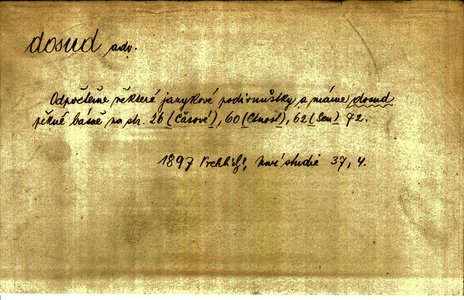 dosud adv.
Odpočteme některé jazykové podivnůstky a máme dosud
pěkné básně na str. 26 (Čarové), 60 (Ctnost), 62 (Sen) 72.
1897 Vrchlický, Nové studie 37, 4.